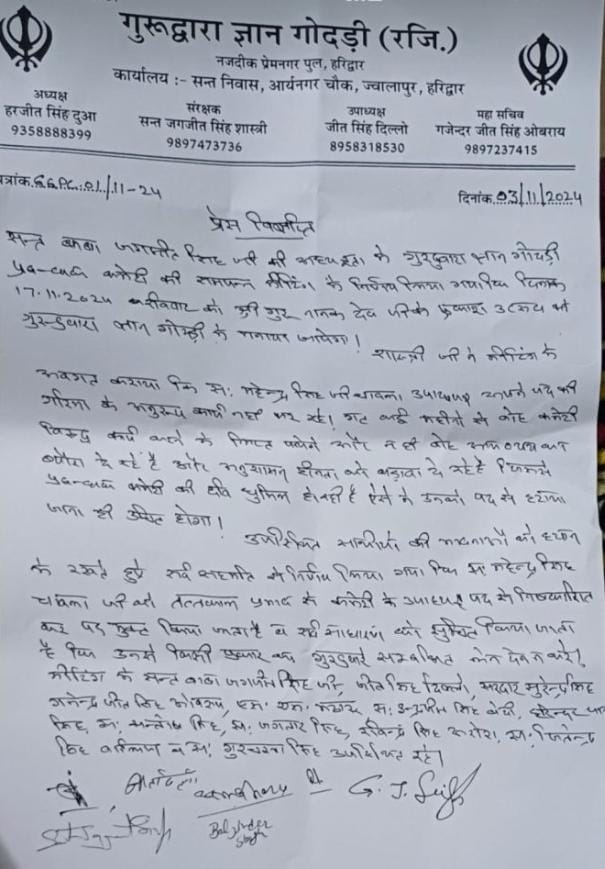 गुरूद्वारा ज्ञान गोदड़ी (रजि.)
नजदीक प्रेमनगर पुल, हरिद्वार
कार्यालय :- सन्त निवास, आर्यनगर चौक, ज्वालापुर, हरिद्वार
अध्यक्ष
हरजीत सिंह दुआ
9358888399
संरक्षक
सन्त जगजीत सिंह शास्त्री
9897473736
उपाध्यक्ष
जीत सिंह दिल्लो
8958318530
महा सचिव
गजेन्दर जीत सिंह ओबराय
9897237415
पत्रांक.GGPC.:01/11-24
दिनांक.03/11/2024
प्रेस विज्ञप्ति
सन्त बाबा जगजीत सिंह जी की अध्यक्षता में गुरुद्वारा ज्ञान गोदड़ी
प्रबन्धक कमेटी की सम्पन्न मीटिंग में निर्णय किया गया कि दिनांक
17.11.2024 रविवार को श्री गुरु नानक देव जी का प्रकाश उत्सव
गुरुद्वारा ज्ञान गोदड़ी में मनाया जायेगा।
शास्त्री जी ने मीटिंग में
अवगत कराया कि स. महेन्द्र सिंह जी चावला उपाध्यक्ष अपने पद की
गरिमा के अनुरूप कार्य नहीं कर रहे। गत कई महीनों से वोह कमेटी
विरुद्ध कार्य करने में
और अनुशासन हीनता को बढ़ावा दे रहे है जिससे
प्रबन्धक कमेटी की छवि धूमिल हो रही है ऐसे में उनको पद से हटाया
जाना ही उचित होगा।
उपस्थित साथीयों की भावनाओं को ध्यान
में रखते हुए सर्व सहमति से निर्णय किया गया कि स. महेन्द्र सिंह
चावला जी को तत्काल प्रभाव से कमेटी के उपाध्यक्ष पद से निष्कासित
कर पद मुक्त किया जाता है व सर्व साधारण को सूचित किया जाता
है कि उनसे किसी प्रकार का गुरुद्वारे सम्बन्धित लेन देन न करें।
मीटिंग में सन्त बाबा जगजीत सिंह जी, जीत सिंह दिल्लो, सरदार सुरेन्द्र सिंह
गजेन्द्र जीत सिंह ओबराय, एस. एस.
सिंह, स. सन्तोख सिंह, स. जगतार सिंह, रविन्द्र सिंह अरोरा, स. जितेन्द्र
सिंह व स. गुरचरण सिंह उपस्थित रहे।
G. J. Singh
Baljinder
Singh